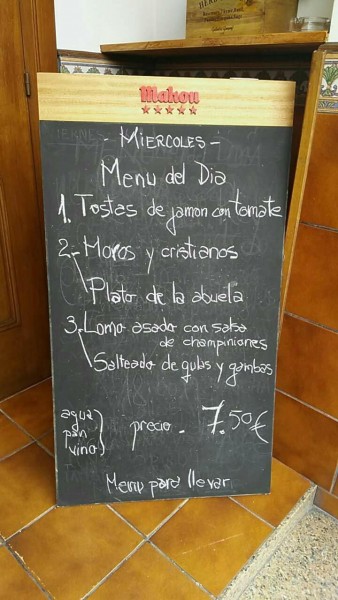 Mahou
- MIERCOLES -
Menu del Dia
1. Tostas de jamon con tomate
2.- Moros y cristianos
Plato de la abuela
3.- Lomo asado con salsa
de champiniones
Salteado de gulas y gambas
agua
pan
vino
precio - 7.50€
Menu para llevar